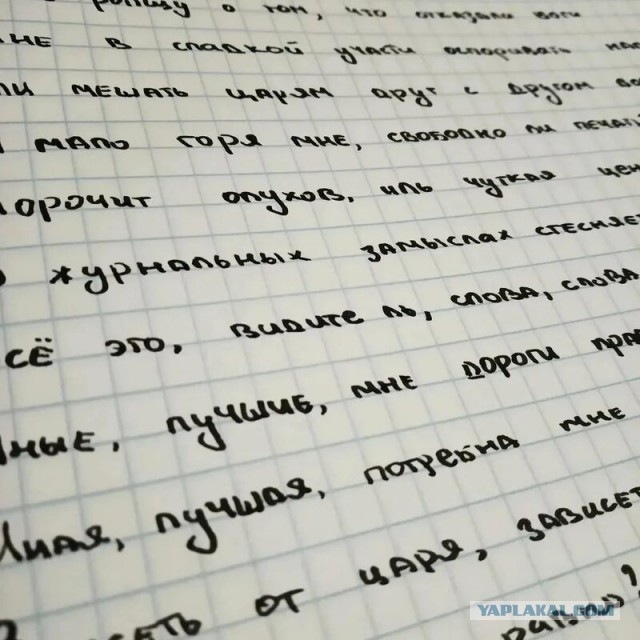 ропщу о том, что отказали боги
мне в сладкой участи оспоривать
мешать царям друг с другом
мало горя мне, свободно ли
морочит олухов, иль чуткая
журнальных замыслах стесняет
сё это, видите ль, слова, слова
ные, лучшие, мне дороги
Иная, лучшая, потребна мне
от царя, зависеть
равно?
YAPLAKAL.COM